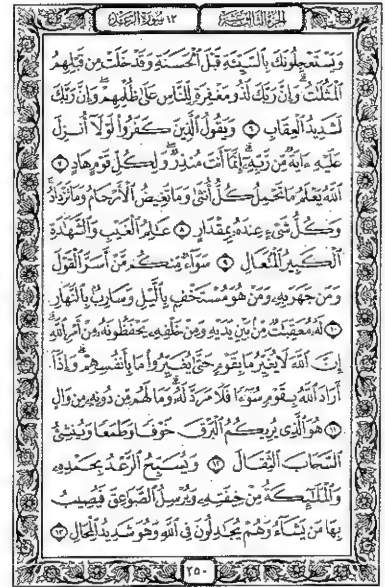 الجزء الثالث عشر ١٣ سورة الرعد
وَيَسْتَعْجِلُونَكَ بِٱلسَّيِّئَةِ قَبْلَ ٱلْحَسَنَةِ وَقَدْ خَلَتْ مِن قَبْلِهِمُ
ٱلْمَثُلَٰتُ ۗ وَإِنَّ رَبَّكَ لَذُو مَغْفِرَةٍ لِّلنَّاسِ عَلَىٰ ظُلْمِهِمْ ۖ وَإِنَّ رَبَّكَ
لَشَدِيدُ ٱلْعِقَابِ ٦ وَيَقُولُ ٱلَّذِينَ كَفَرُوا۟ لَوْلَآ أُنزِلَ
عَلَيْهِ ءَايَةٌ مِّن رَّبِّهِۦٓ ۗ إِنَّمَآ أَنتَ مُنذِرٌ ۖ وَلِكُلِّ قَوْمٍ هَادٍ ٧
ٱللَّهُ يَعْلَمُ مَا تَحْمِلُ كُلُّ أُنثَىٰ وَمَا تَغِيضُ ٱلْأَرْحَامُ وَمَا تَزْدَادُ ۖ
وَكُلُّ شَىْءٍ عِندَهُۥ بِمِقْدَارٍ ٨ عَٰلِمُ ٱلْغَيْبِ وَٱلشَّهَٰدَةِ
ٱلْكَبِيرُ ٱلْمُتَعَالِ ٩ سَوَآءٌ مِّنكُم مَّنْ أَسَرَّ ٱلْقَوْلَ
وَمَن جَهَرَ بِهِۦ وَمَنْ هُوَ مُسْتَخْفٍۭ بِٱلَّيْلِ وَسَارِبٌۢ بِٱلنَّهَارِ
١٠ لَهُۥ مُعَقِّبَٰتٌ مِّنۢ بَيْنِ يَدَيْهِ وَمِنْ خَلْفِهِۦ يَحْفَظُونَهُۥ مِنْ أَمْرِ ٱللَّهِ ۗ
إِنَّ ٱللَّهَ لَا يُغَيِّرُ مَا بِقَوْمٍ حَتَّىٰ يُغَيِّرُوا۟ مَا بِأَنفُسِهِمْ ۗ وَإِذَآ
أَرَادَ ٱللَّهُ بِقَوْمٍ سُوٓءًا فَلَا مَرَدَّ لَهُۥ ۚ وَمَا لَهُم مِّن دُونِهِۦ مِن وَالٍ
١١ هُوَ ٱلَّذِى يُرِيكُمُ ٱلْبَرْقَ خَوْفًا وَطَمَعًا وَيُنشِئُ
ٱلسَّحَابَ ٱلثِّقَالَ ١٢ وَيُسَبِّحُ ٱلرَّعْدُ بِحَمْدِهِۦ
وَٱلْمَلَٰٓئِكَةُ مِنْ خِيفَتِهِۦ وَيُرْسِلُ ٱلصَّوَٰعِقَ فَيُصِيبُ
بِهَا مَن يَشَآءُ وَهُمْ يُجَٰدِلُونَ فِى ٱللَّهِ وَهُوَ شَدِيدُ ٱلْمِحَالِ ١٣
٢٥٠